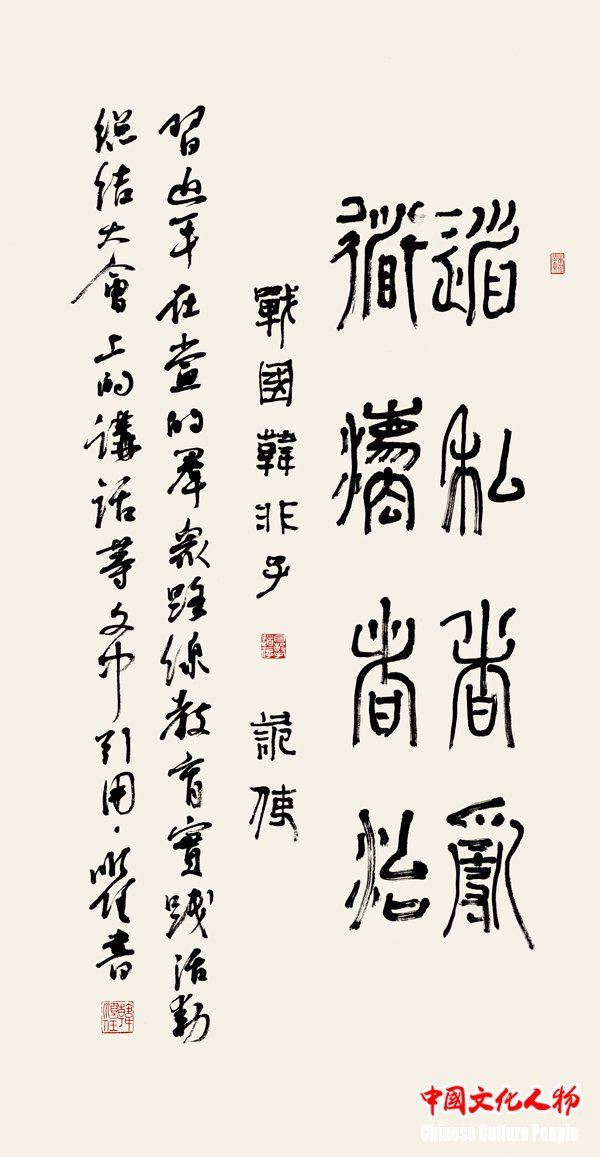 道私者亂
衜灋者治
戰國韓非子 詭使
習近平在黨的羣衆路線教育實踐活動
總結大會上的講話等文中引用·書
中國文化人物
Chinese Culture People